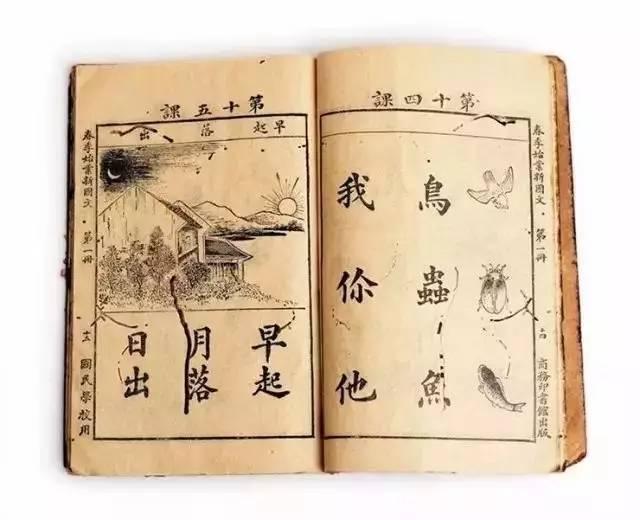 春季始業新國文・第一冊 十四 商務印書館出版
第十四課
鳥 蟲 魚
我 你 他
第十五課
早起 落 出
早起
月落
日出
春季始業新國文・第一冊 十五 國民學校用